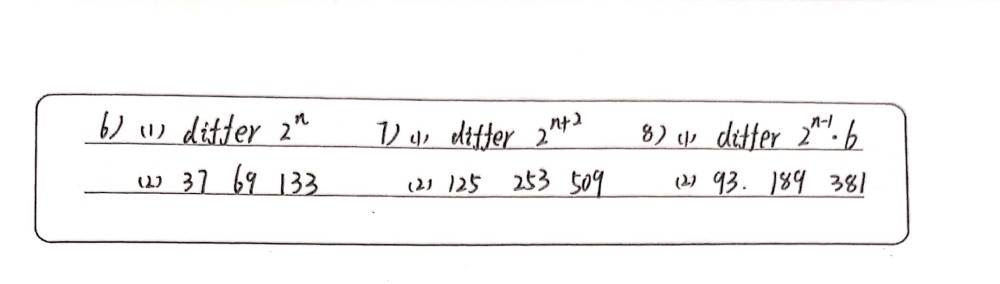 6) (1) differ 2ⁿ 7) (1) differ 2ⁿ⁺² 8) (1) differ 2ⁿ⁻¹·6
(2) 37 69 133 (2) 125 253 509 (2) 93. 189 381